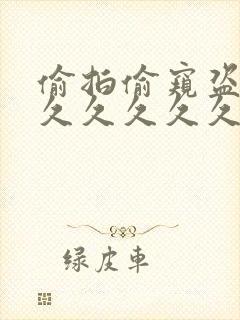 偷拍偷窥盗
久久久久久
绿皮车